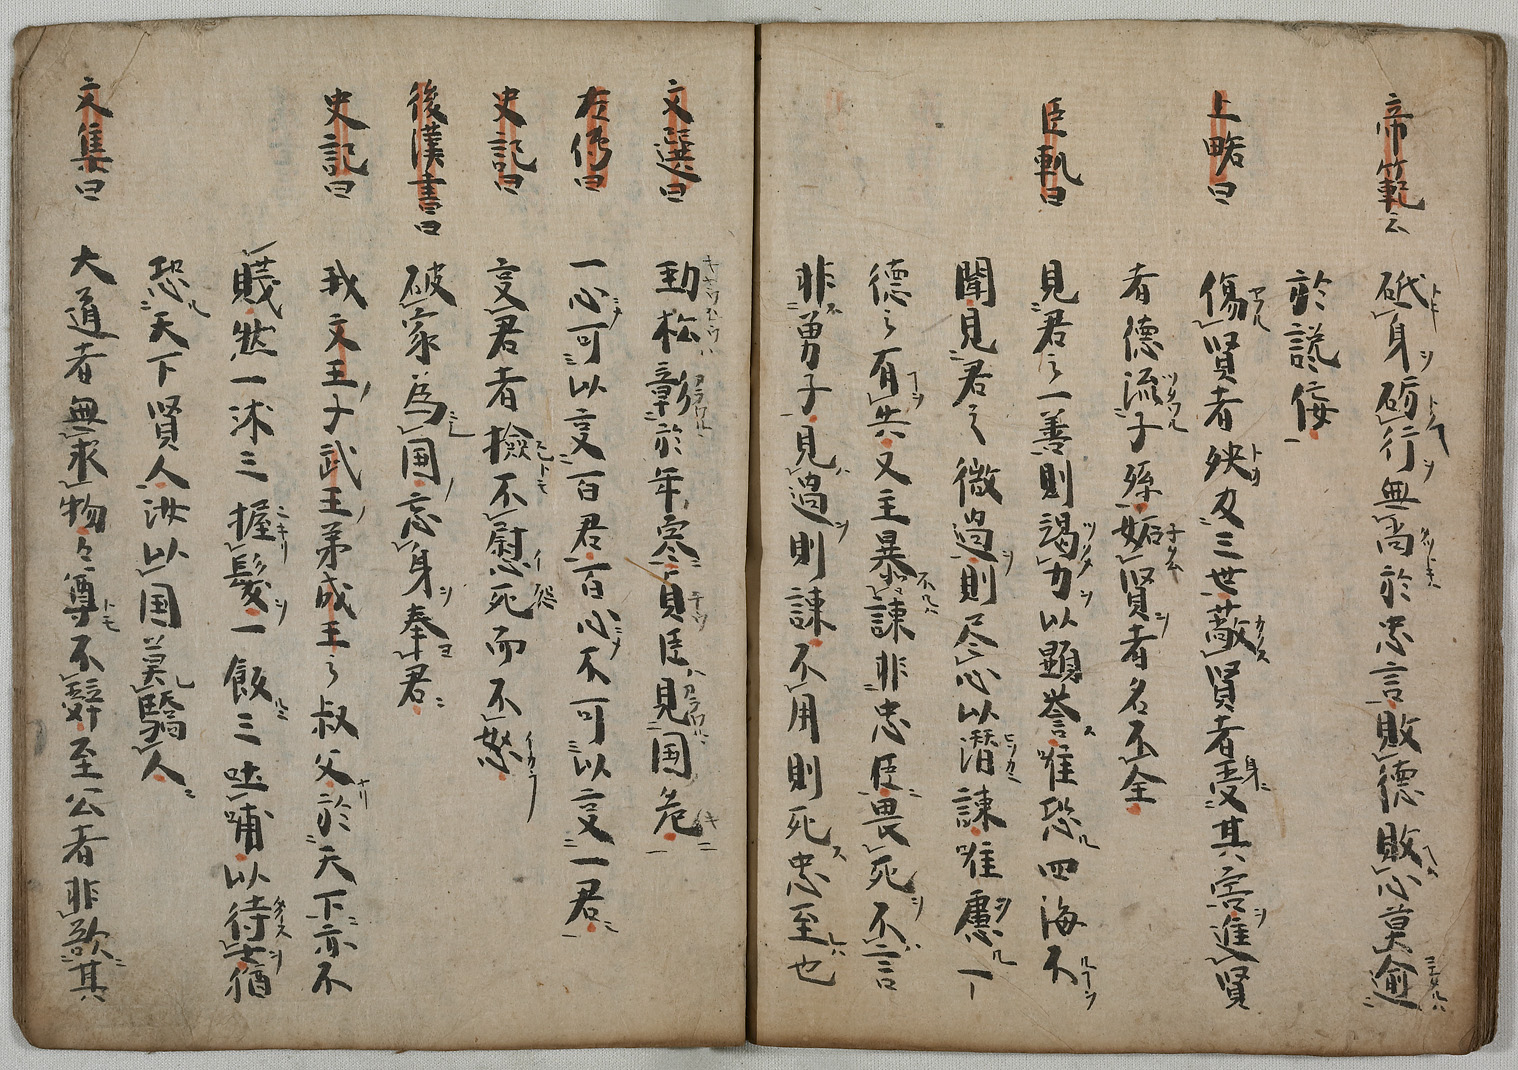 帝範云 砥身砺行無尚於忠言敗德敗心莫逾
於讒佞
上略曰 傷賢者殃及三世蔽賢者受其害進賢
者德流子孫妬賢者名不全
臣軌曰 見君之一善則竭力以顕誉唯恐四海不
聞見君之微過則尽心以潜諫唯慮一
德之有失又主暴不諫非忠臣畏死不言
非勇子見過則諫不用則死忠至也
文選曰 勁松彰於年寒貞臣見国危
左傳曰 一心可以事百君百心不可以事一君
史記曰 事君者險不慰死而不怒
後漢書曰 破家為国忘身奉君
史記曰 我文王子武王弟成王之叔父於天下亦不
賤然一沐三握髮一飯三吐哺以待士猶
恐天下賢人汝以国莫驕人
文集曰 大道者無求物々尊不辞至公者非歌其